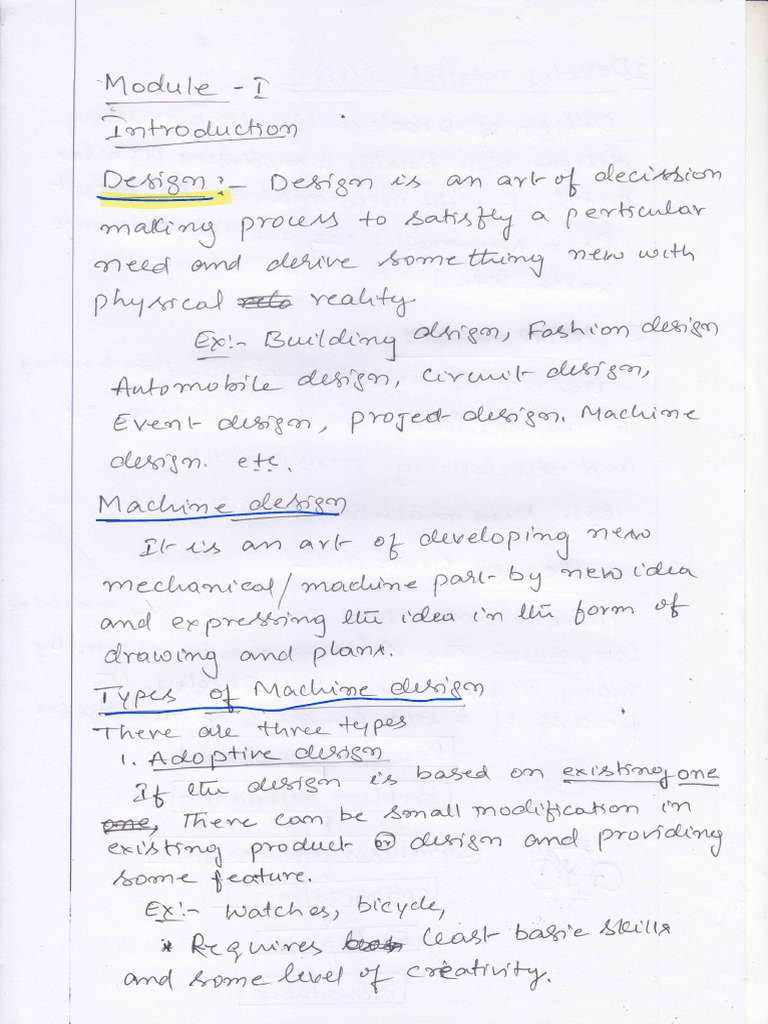 Module - I
Introduction
Design :- Design is an art of decission
making process to satisfly a perticular
need and derive something new with
physical reality
Ex:- Building design, Fashion design
Automobile design, circuit design,
Event design, project design. Machine
design. etc.
Machine design
It is an art of developing new
mechanical/machine part by new idea
and expressing the idea in the form of
drawing and plans.
Types of Machine design
There are three types
1. Adoptive design
If the design is based on existing one
one, There can be small modification in
existing product or design and providing
some feature.
Ex:- Watches, bicycle,
* Requires least basic skills
and some level of creativity.